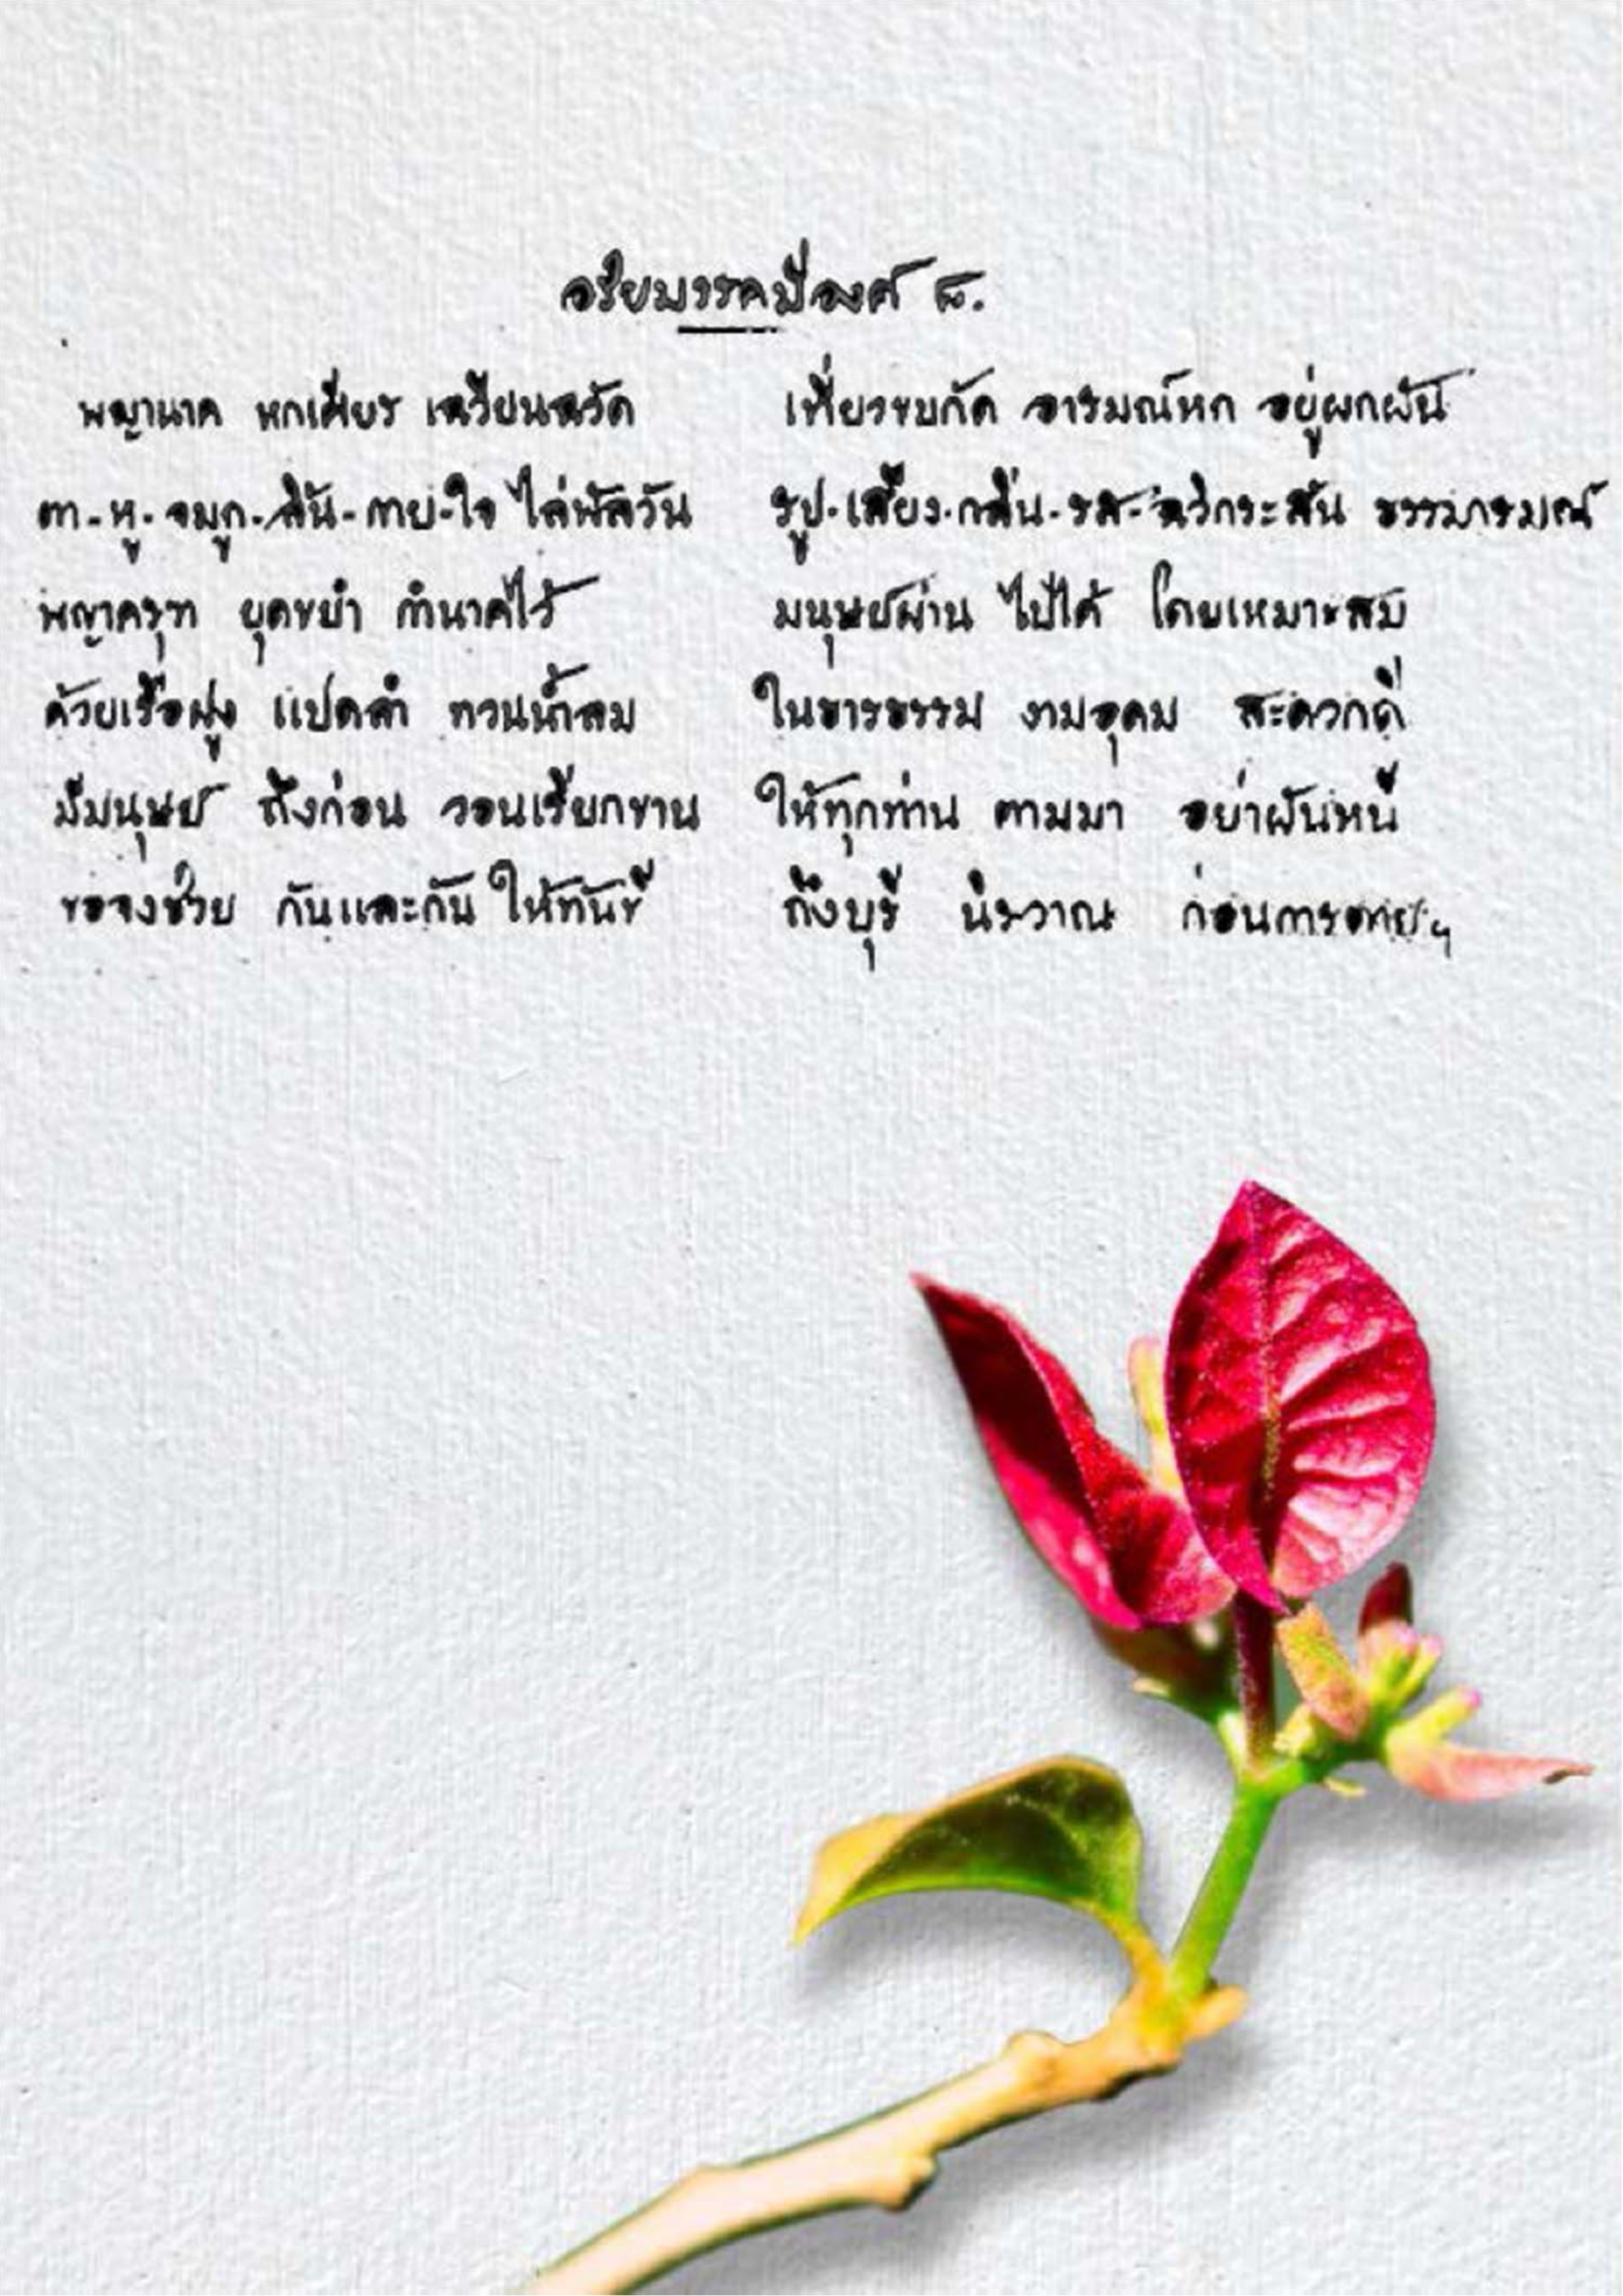 อริยมรรคมีองค์ ๘.
พญานาค หกเศียร เฉวียนฉวัด เที่ยวขบกัด อารมณ์หก อยู่ผกผัน
ตา-หู-จมูก-ลิ้น-กาย-ใจ ไล่พัลวัน รูป-เสียง-กลิ่น-รส-ฉวีกระสัน ธรรมารมณ์
พญาครุฑ ยุดขยำ กำนาคไว้ มนุษย์ผ่าน ไปได้ โดยเหมาะสม
ด้วยเรือฝูง แปดลำ ทวนน้ำลม ในธารธรรม งามอุดม สะดวกดี
มีมนุษย์ ถึงก่อน วอนเรียกขาน ให้ทุกท่าน ตามมา อย่าผันหนี
ขอจงช่วย กันและกัน ให้ทันที ถึงบุรี นิรวาณ ก่อนการตายฯ